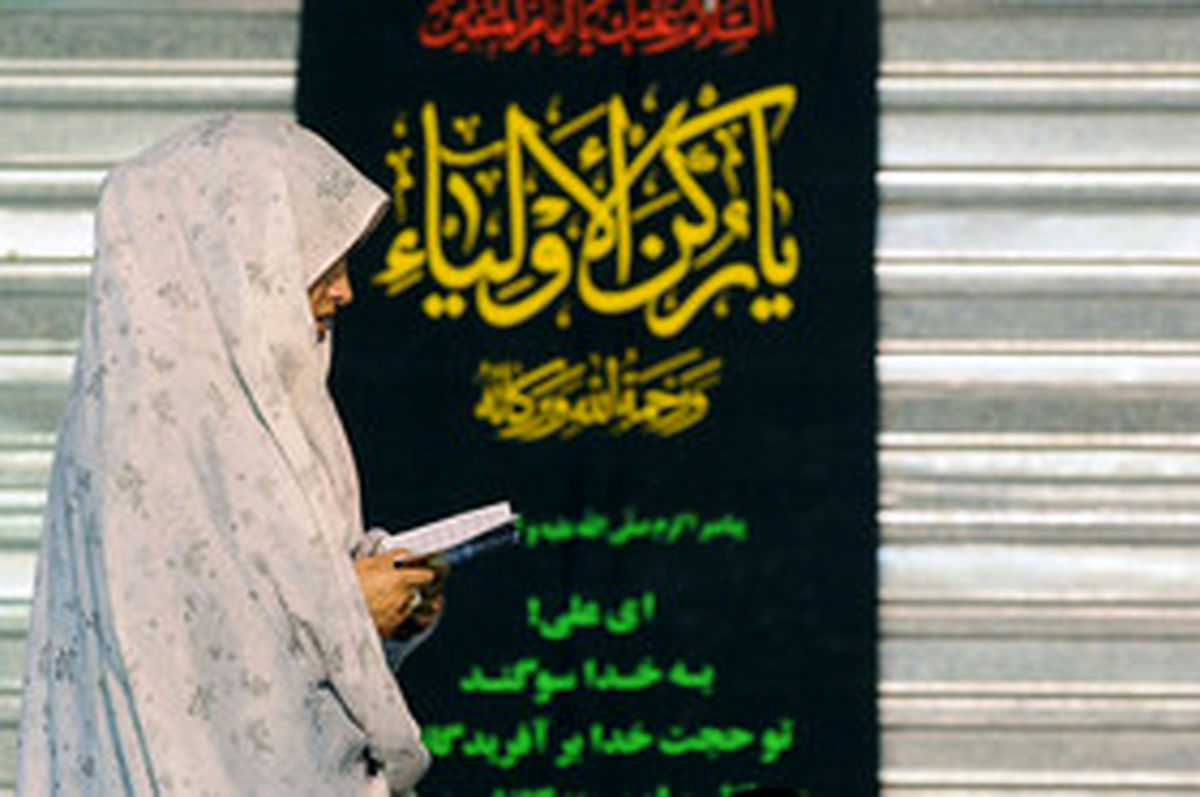 السلام علیک یا امام المتقین
یا رُکنَ الأَولیاءِ
وَرَحمَةُ اللهِ وَبَرَکاتُهُ
پیامبر اکرم صلّی الله علیه و
ای علی!
به خدا سوگند
تو حجت خدا بر آفریدگان